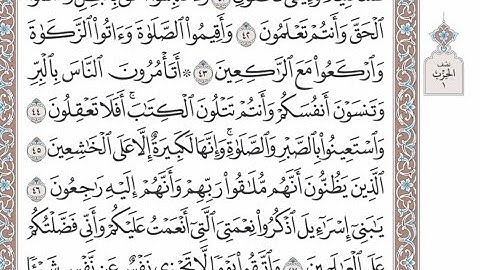 الْحَقَّ وَأَنتُمْ تَعْلَمُونَ ٤٢ وَأَقِيمُوا۟ الصَّلَوٰةَ وَءَاتُوا۟ الزَّكَوٰةَ
وَارْكَعُوا۟ مَعَ الرَّٰكِعِينَ ٤٣ ۞ أَتَأْمُرُونَ النَّاسَ بِالْبِرِّ
وَتَنسَوْنَ أَنفُسَكُمْ وَأَنتُمْ تَتْلُونَ الْكِتَٰبَ ۚ أَفَلَا تَعْقِلُونَ ٤٤
وَاسْتَعِينُوا۟ بِالصَّبْرِ وَالصَّلَوٰةِ ۚ وَإِنَّهَا لَكَبِيرَةٌ إِلَّا عَلَى الْخَٰشِعِينَ ٤٥
الَّذِينَ يَظُنُّونَ أَنَّهُم مُّلَٰقُوا۟ رَبِّهِمْ وَأَنَّهُمْ إِلَيْهِ رَٰجِعُونَ ٤٦
يَٰبَنِىٓ إِسْرَٰٓءِيلَ اذْكُرُوا۟ نِعْمَتِىَ الَّتِىٓ أَنْعَمْتُ عَلَيْكُمْ وَأَنِّى فَضَّلْتُكُمْ
عَلَى الْعَٰلَمِينَ ٤٧ وَاتَّقُوا۟ يَوْمًا لَّا تَجْزِى نَفْسٌ عَن نَّفْسٍ شَيْـًٔا
نصف
الحزب
١